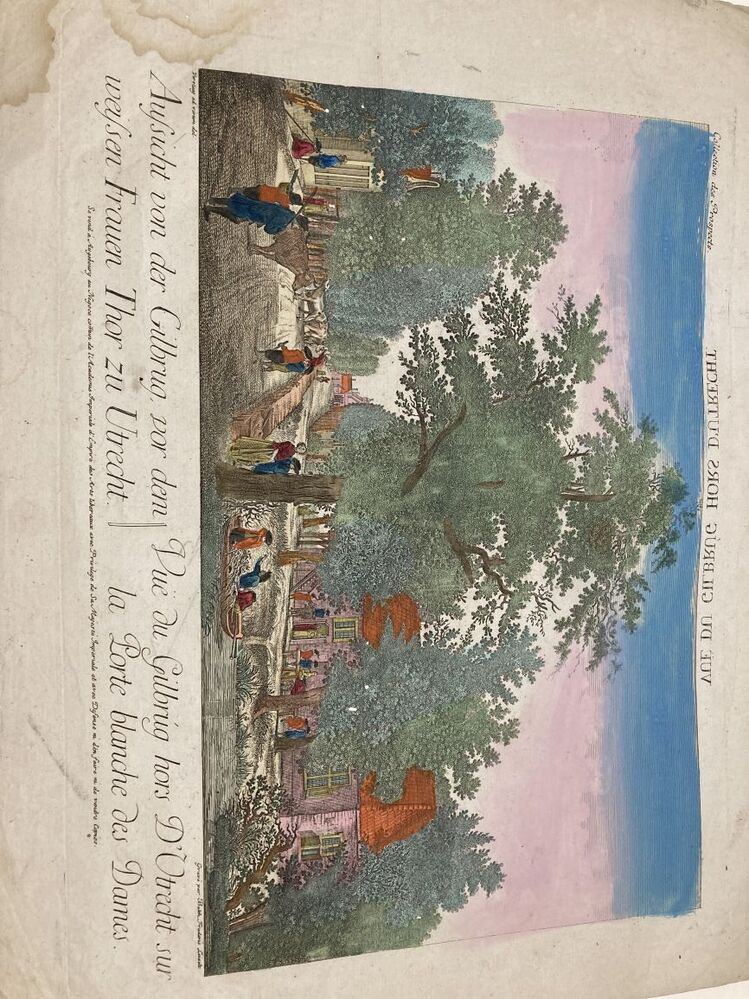 Collection des Prospects
VUE DU GILBRUG HORS D'UTRECHT
Aufsicht von der Gilbrug, vor dem
weyssen Frauen Thor zu Utrecht.
Vuë du Gilbrúg hors D'Utrecht sur
la Porte blanche des Dames.
Gravé par Balth. Frederic Leizelt
Se vend à Augsbourg au Négoce comun de l'Academie Imperiale d'Empire des Arts liberaux avec Privilege de Sa Majesté Imperiale et avec Defense ni d'en faire ni de vendre les Copies.